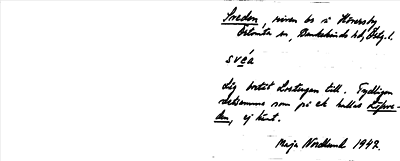 Sveden, riven bs i Hoversby
Östomta sn, Bankekinds hd, Östg. l.
svéa
Låg bortåt Lostugan till. Tydligen
detsamma som på ek. kallas Löpve-
den, ej känt.
Maja Nordlund 1942.